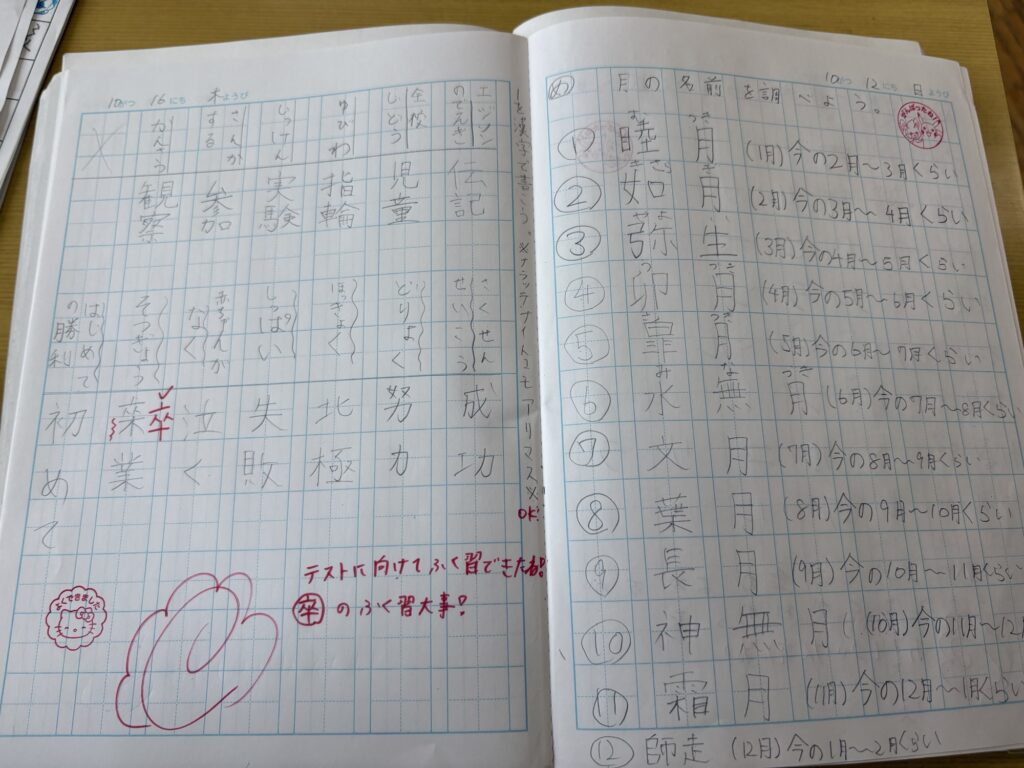 10がつ 12にち 日ようび
め 月の名前を調べよう。
がんばったね!
① 睦月 (1月)今の2月〜3月くらい
② 如月 (2月)今の3月〜4月くらい
③ 弥生 (3月)今の4月〜5月くらい
④ 卯月 (4月)今の5月〜6月くらい
⑤ 皐月 (5月)今の6月〜7月くらい
⑥ 水無月 (6月)今の7月〜8月くらい
⑦ 文月 (7月)今の8月〜9月くらい
⑧ 葉月 (8月)今の9月〜10月くらい
⑨ 長月 (9月)今の10月〜11月くらい
⑩ 神無月 (10月)今の11月〜12月
⑪ 霜月 (11月)今の12月〜1月くらい
⑫ 師走 (12月)今の1月〜2月くらい
10がつ 16にち 木ようび
を漢字で書こう。※ナラッテナイ モアリマス※
OK!
エジソンのでんき 伝記
全校じどう 児童
ゆびわ 指輪
じっけん 実験
さんかする 参加
かんさつ 観察
さくせんせいこう 成功
どりょく 努力
ほっきょく 北極
しっぱい 失敗
赤ちゃんがなく 泣く
そつぎょう 卒業
卒
はじめての勝利 初めて
テストに向けてふく習できたね!
卒のふく習大事!
よくできました